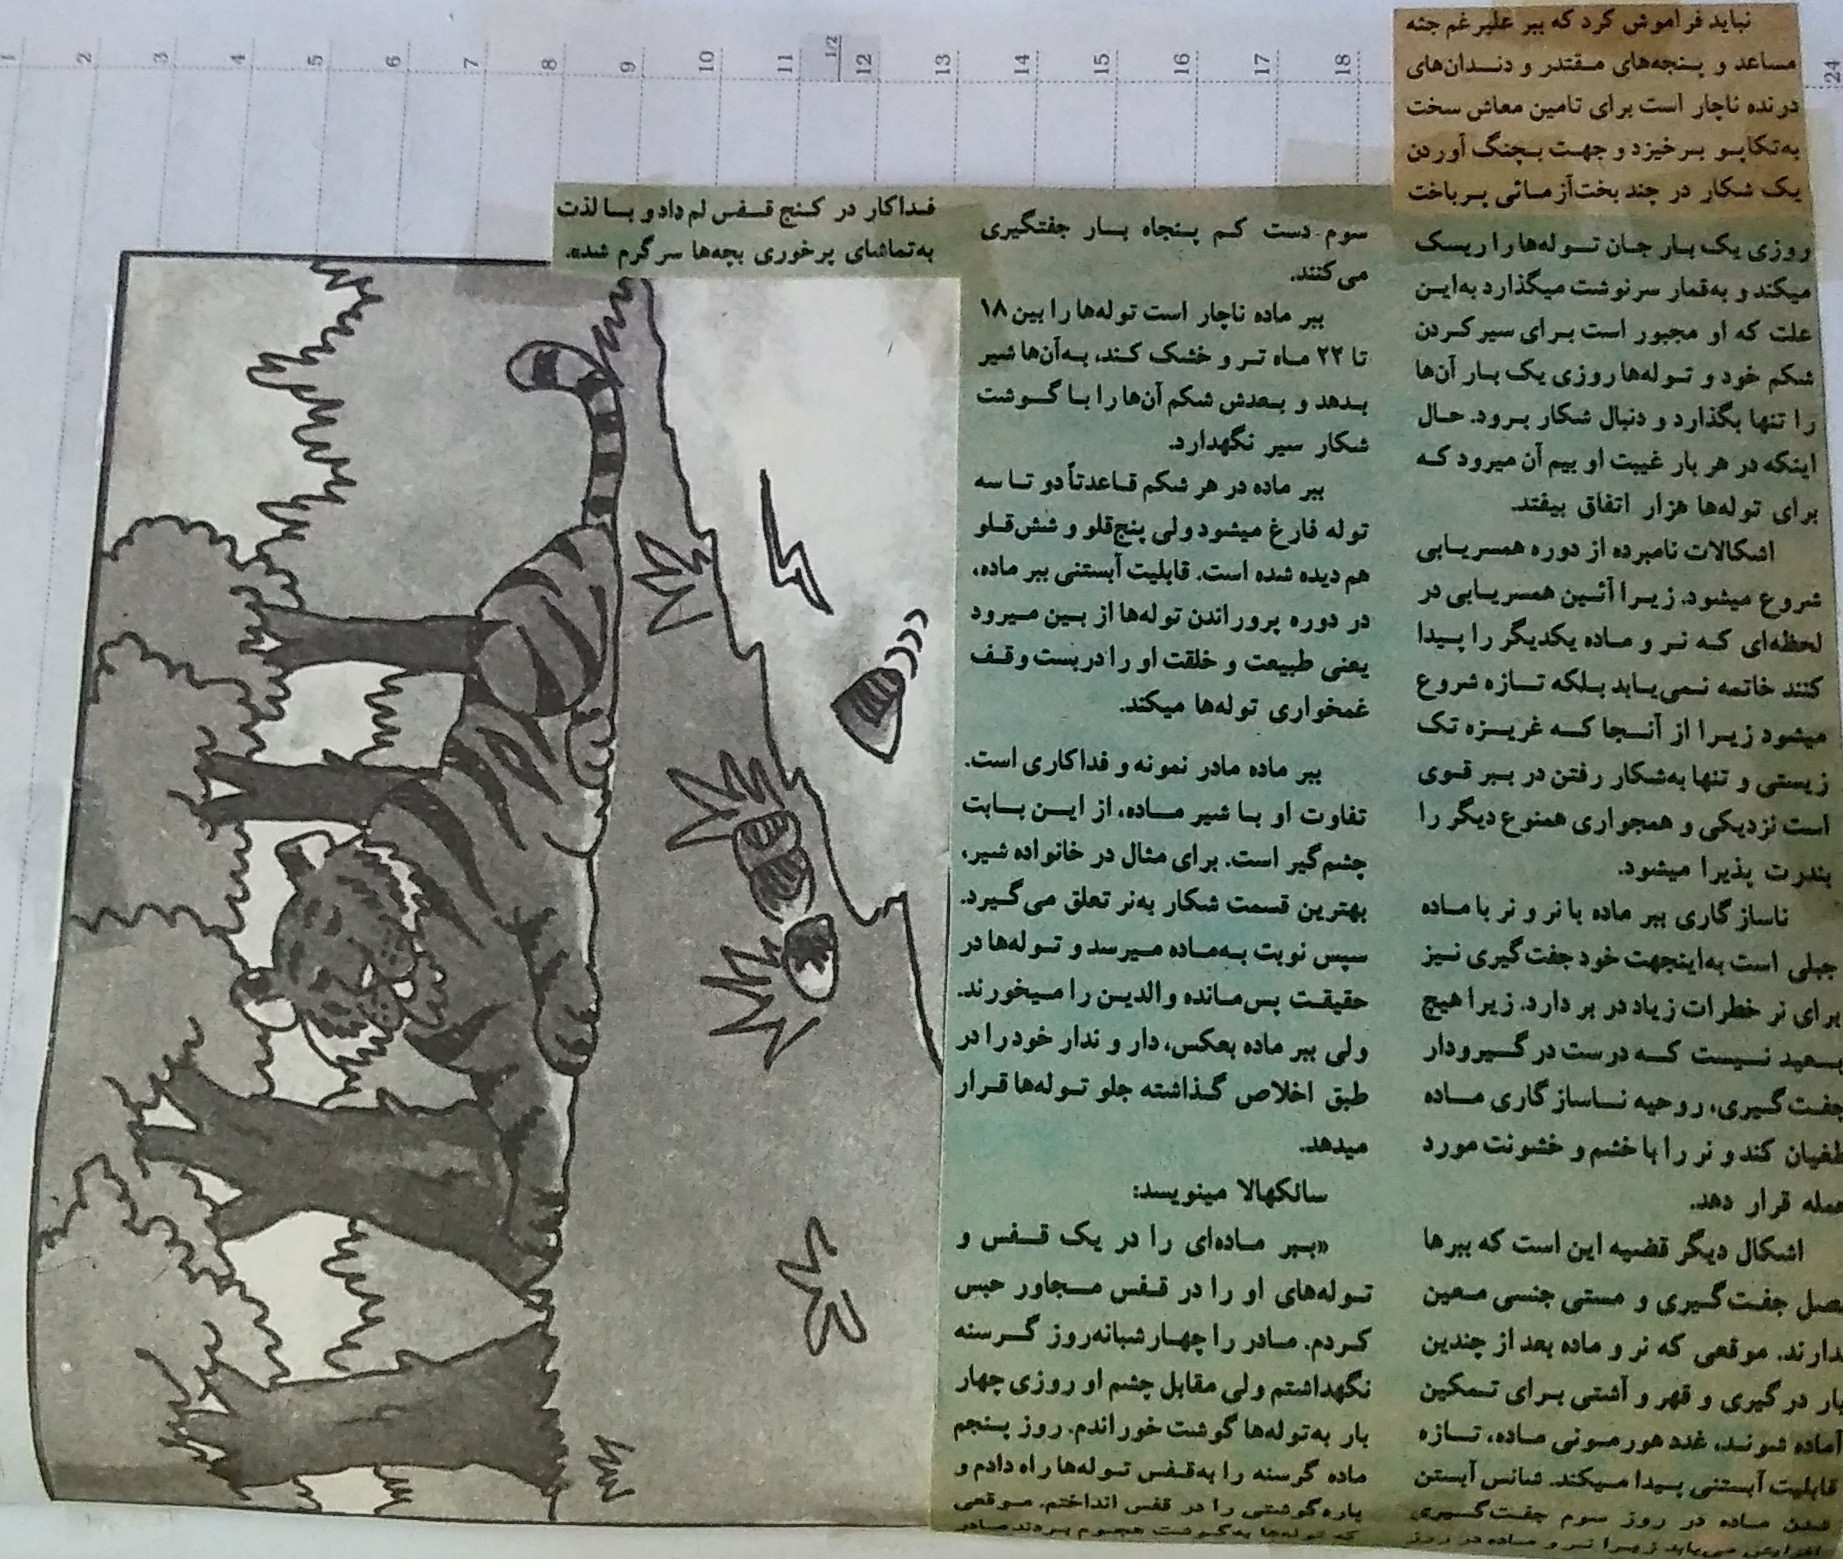 1
2
3
4
5
6
7
8
9
10
11
1/2
12
13
14
15
16
17
18
24
نباید فراموش کرد که ببر علیرغم جثه
مساعد و پنجه‌های مقتدر و دندان‌های
درنده ناچار است برای تامین معاش سخت
به‌تکاپو برخیزد و جهت بچنگ آوردن
یک شکار در چند بخت‌آزمائی پرباخت
روزی یک بار جان توله‌ها را ریسک
میکند و به‌قمار سرنوشت میگذارد به‌این
علت که او مجبور است برای سیر کردن
شکم خود و توله‌ها روزی یک بار آن‌ها
را تنها بگذارد و دنبال شکار برود. حال
اینکه در هر بار غیبت او بیم آن میرود که
برای توله‌ها هزار اتفاق بیفتد.
اشکالات نامبرده از دوره همسریابی
شروع میشود. زیرا آئین همسریابی در
لحظه‌ای که نر و ماده یکدیگر را پیدا
کنند خاتمه نمی‌یابد بلکه تازه شروع
میشود زیرا از آنجا که غریزه تک
زیستی و تنها به‌شکار رفتن در ببر قوی
است نزدیکی و همجواری همنوع دیگر را
بندرت پذیرا میشود.
ناسازگاری ببر ماده با نر و نر با ماده
جبلی است به‌اینجهت خود جفت‌گیری نیز
برای نر خطرات زیاد در بر دارد. زیرا هیچ
بعید نیست که درست در گیرودار
جفت‌گیری، روحیه ناسازگاری ماده
طغیان کند و نر را با خشم و خشونت مورد
حمله قرار دهد.
اشکال دیگر قضیه این است که ببرها
فصل جفت‌گیری و مستی جنسی معین
ندارند. موقعی که نر و ماده بعد از چندین
بار درگیری و قهر و آشتی برای تمکین
آماده شوند، غدد هورمونی ماده، تازه
قابلیت آبستنی پیدا میکند. شانس آبستن
شدن ماده در روز سوم جفت‌گیری
افزایش می‌یابد زیرا نر و ماده در روز
سوم دست کم پنجاه بار جفتگیری
می‌کنند.
ببر ماده ناچار است توله‌ها را بین ۱۸
تا ۲۲ ماه تر و خشک کند، به‌آن‌ها شیر
بدهد و بعدش شکم آن‌ها را با گوشت
شکار سیر نگهدارد.
ببر ماده در هر شکم قاعدتاً دو تا سه
توله فارغ میشود ولی پنج‌قلو و شش‌قلو
هم دیده شده است. قابلیت آبستنی ببر ماده،
در دوره پروراندن توله‌ها از بین میرود
یعنی طبیعت و خلقت او را دربست وقف
غمخواری توله‌ها میکند.
ببر ماده مادر نمونه و فداکاری است.
تفاوت او با شیر ماده، از این بابت
چشم‌گیر است. برای مثال در خانواده شیر،
بهترین قسمت شکار به‌نر تعلق می‌گیرد.
سپس نوبت به‌ماده میرسد و توله‌ها در
حقیقت پس‌مانده والدین را میخورند.
ولی ببر ماده بعکس، دار و ندار خود را در
طبق اخلاص گذاشته جلو توله‌ها قرار
میدهد.
سانکهالا مینویسد:
«ببر ماده‌ای را در یک قفس و
توله‌های او را در قفس مجاور حبس
کردم. مادر را چهار شبانه‌روز گرسنه
نگهداشتم ولی مقابل چشم او روزی چهار
بار به‌توله‌ها گوشت خوراندم. روز پنجم
ماده گرسنه را به‌قفس توله‌ها راه دادم و
پاره گوشتی را در قفس انداختم. موقعی
که توله‌ها به‌گوشت هجوم بردند مادر
فداکار در کنج قفس لم داد و با لذت
به‌تماشای پرخوری بچه‌ها سرگرم شد».